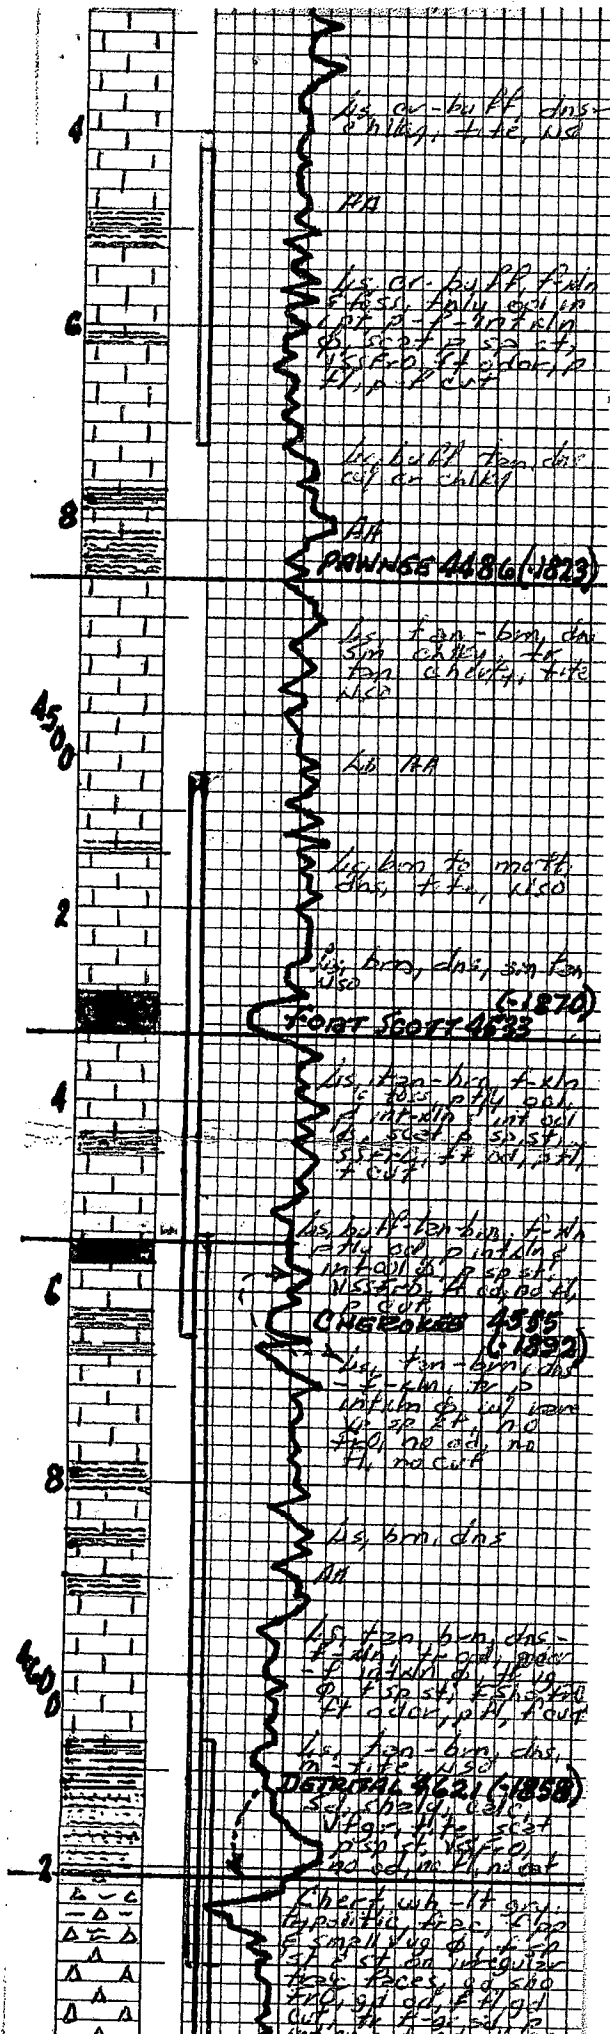 Ls, cr-buff, dns-
chlky, tite, NSO
4
AA
Ls, cr-buff, f-xln
& foss, ool in
p-f-intxln
6
ϕ, scat p sp st,
VSSFRO, ft odor, p
fl, p-f cut
Ls, buff tan, dns
w/ cr chlky
8
AA
PAWNEE 4486 (-1823)
Ls, tan-brn, dns
sm chlky, tr
tan cherty, tite
NSO
4500
Ls AA
Ls, brn to mott,
dns, tite, NSO
2
Ls, brn, dns, sm tan
NSO
(-1870)
FORT SCOTT 4533
Ls, tan-brn f-xln
& foss, ptly ool,
4
p int-xln & int ool
ϕ, scat p sp st,
SSFRO, ft od, p fl,
f cut
Ls, buff-tan-brn, f-xln
ptly ool, p intxln &
intool ϕ, p sp st,
6
VSSFRO, ft od, no fl,
p cut
CHEROKEE 4555
(-1892)
Ls, tan-brn, dns
-f-xln, tr p
intxln ϕ, w/ rare
sp st, no
fro, no od, no
fl, no cut
8
Ls, brn, dns
AA
Ls, tan, brn, dns-
f-xln, tr ool,
-f intxln ϕ,
4600
ϕ, f sp st,
ft odor, p fl, f cut
Ls, tan-brn, dns,
tite, NSO
DETRITAL 4621 (-1858)
Sd, shald, calc
vfgr, tite, scat
p sp st, VSSFRO,
no od, no fl, no cut
2
Chert, wh-lt gry,
frac,
& small vug ϕ, f sp
st & st on irregular
frac faces, gd sho
fro, gd od, f fl, gd
cut, tr f-gr sd, p